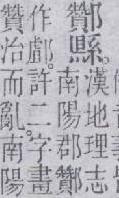 酇縣。
漢地理志
南陽郡酇
作䣜。許二字畫
贊治而亂南陽